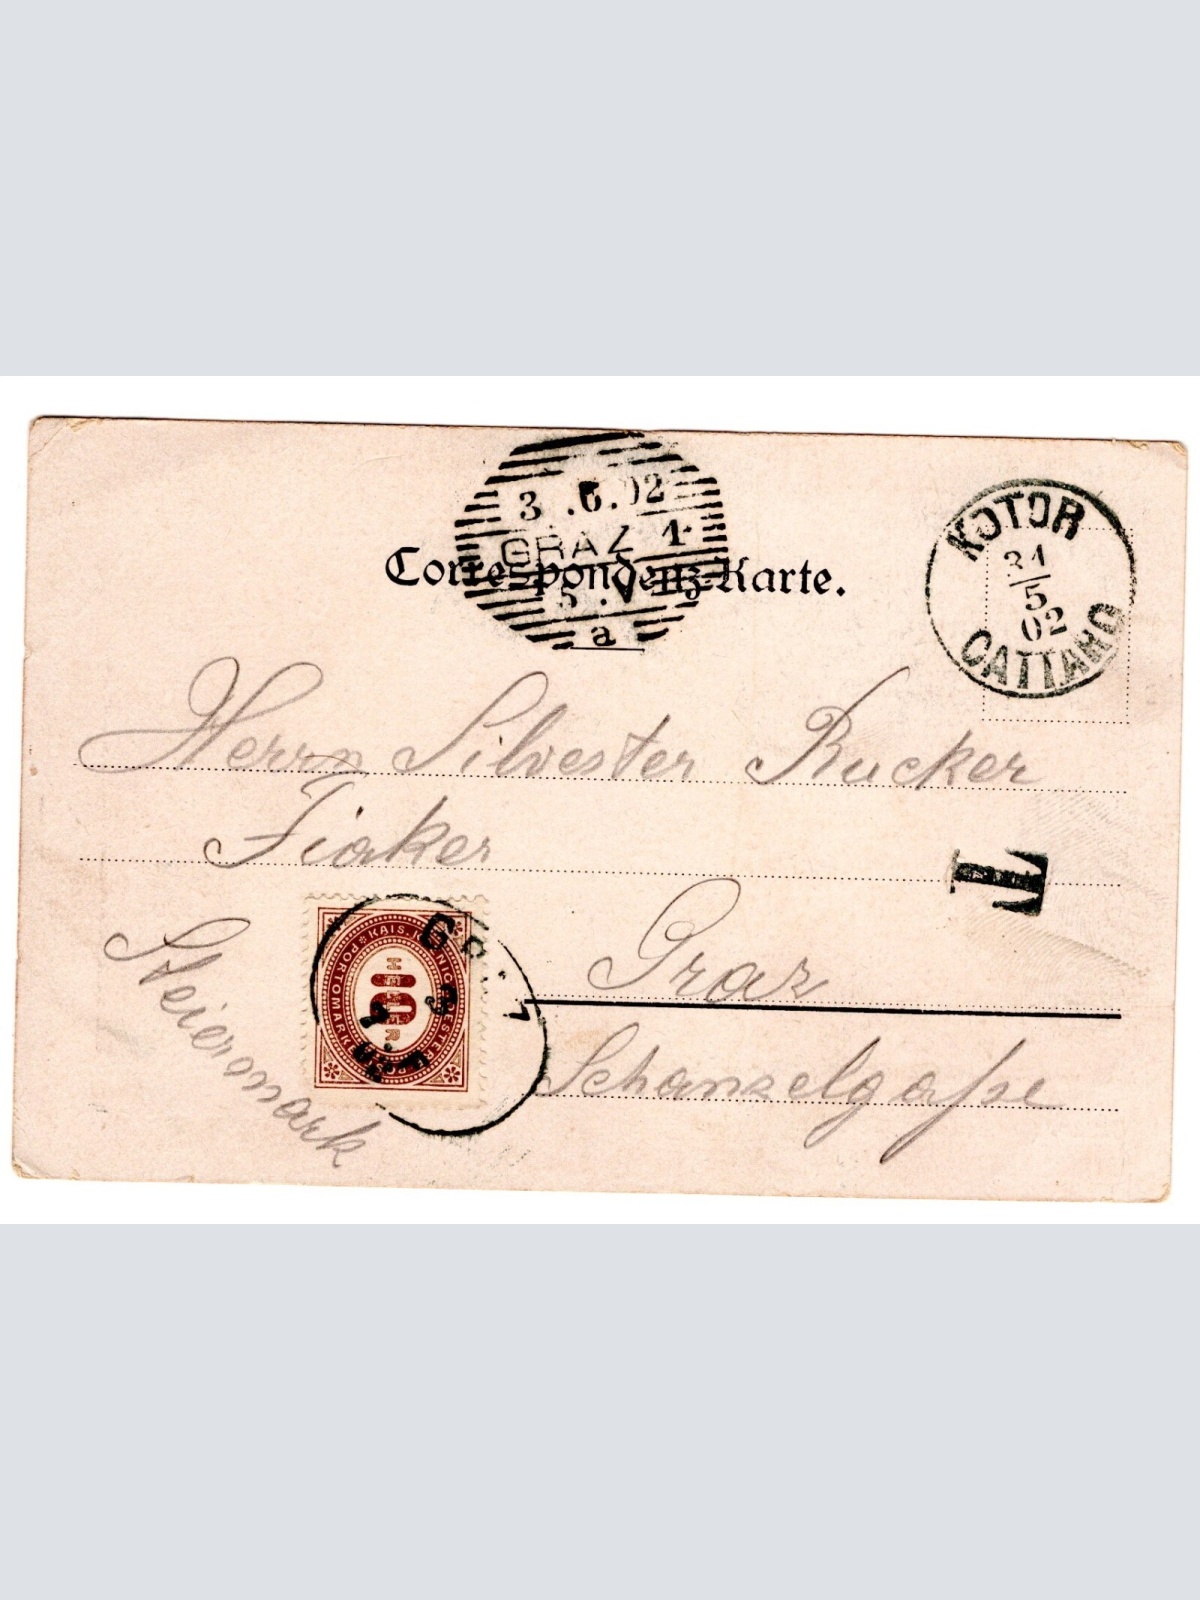 3 .6.02
GRAZ 1
5.V
a
Correspondenz-Karte.
KOTOR
31
5
02
CATTARO
Herrn Silvester Rucker
Fiaker
T
Graz
Schanzelgaße
Steiermark
KAIS. KOENIGL. OESTERR. POST
PORTOMARKE
10
HELLER